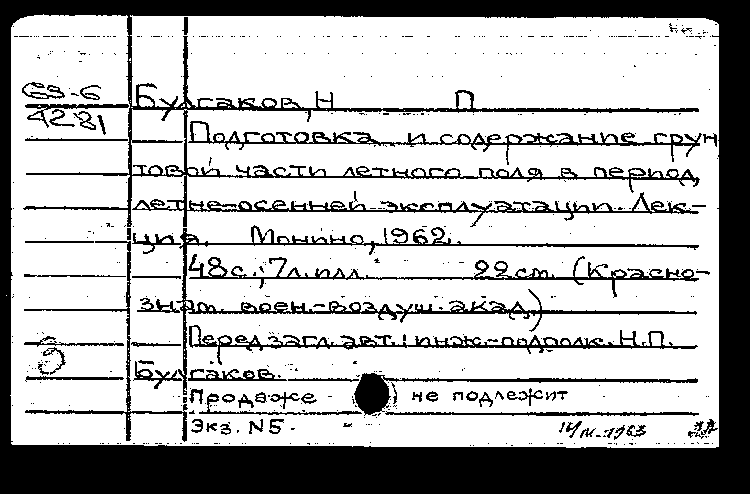 Б3-6
4281
Булгаков, Н П
Подготовка и содержание грун
товой части летного поля в период
летне-осенней эксплуатации. Лек-
ция. Монино, 1962.
48 с.; 7 л. илл. 22 см. (Красно-
знам. воен.-воздуш. акад.)
Перед загл. авт.: инж.-подполк. Н.П.
Булгаков.
Продаже не подлежит
Экз. N5.